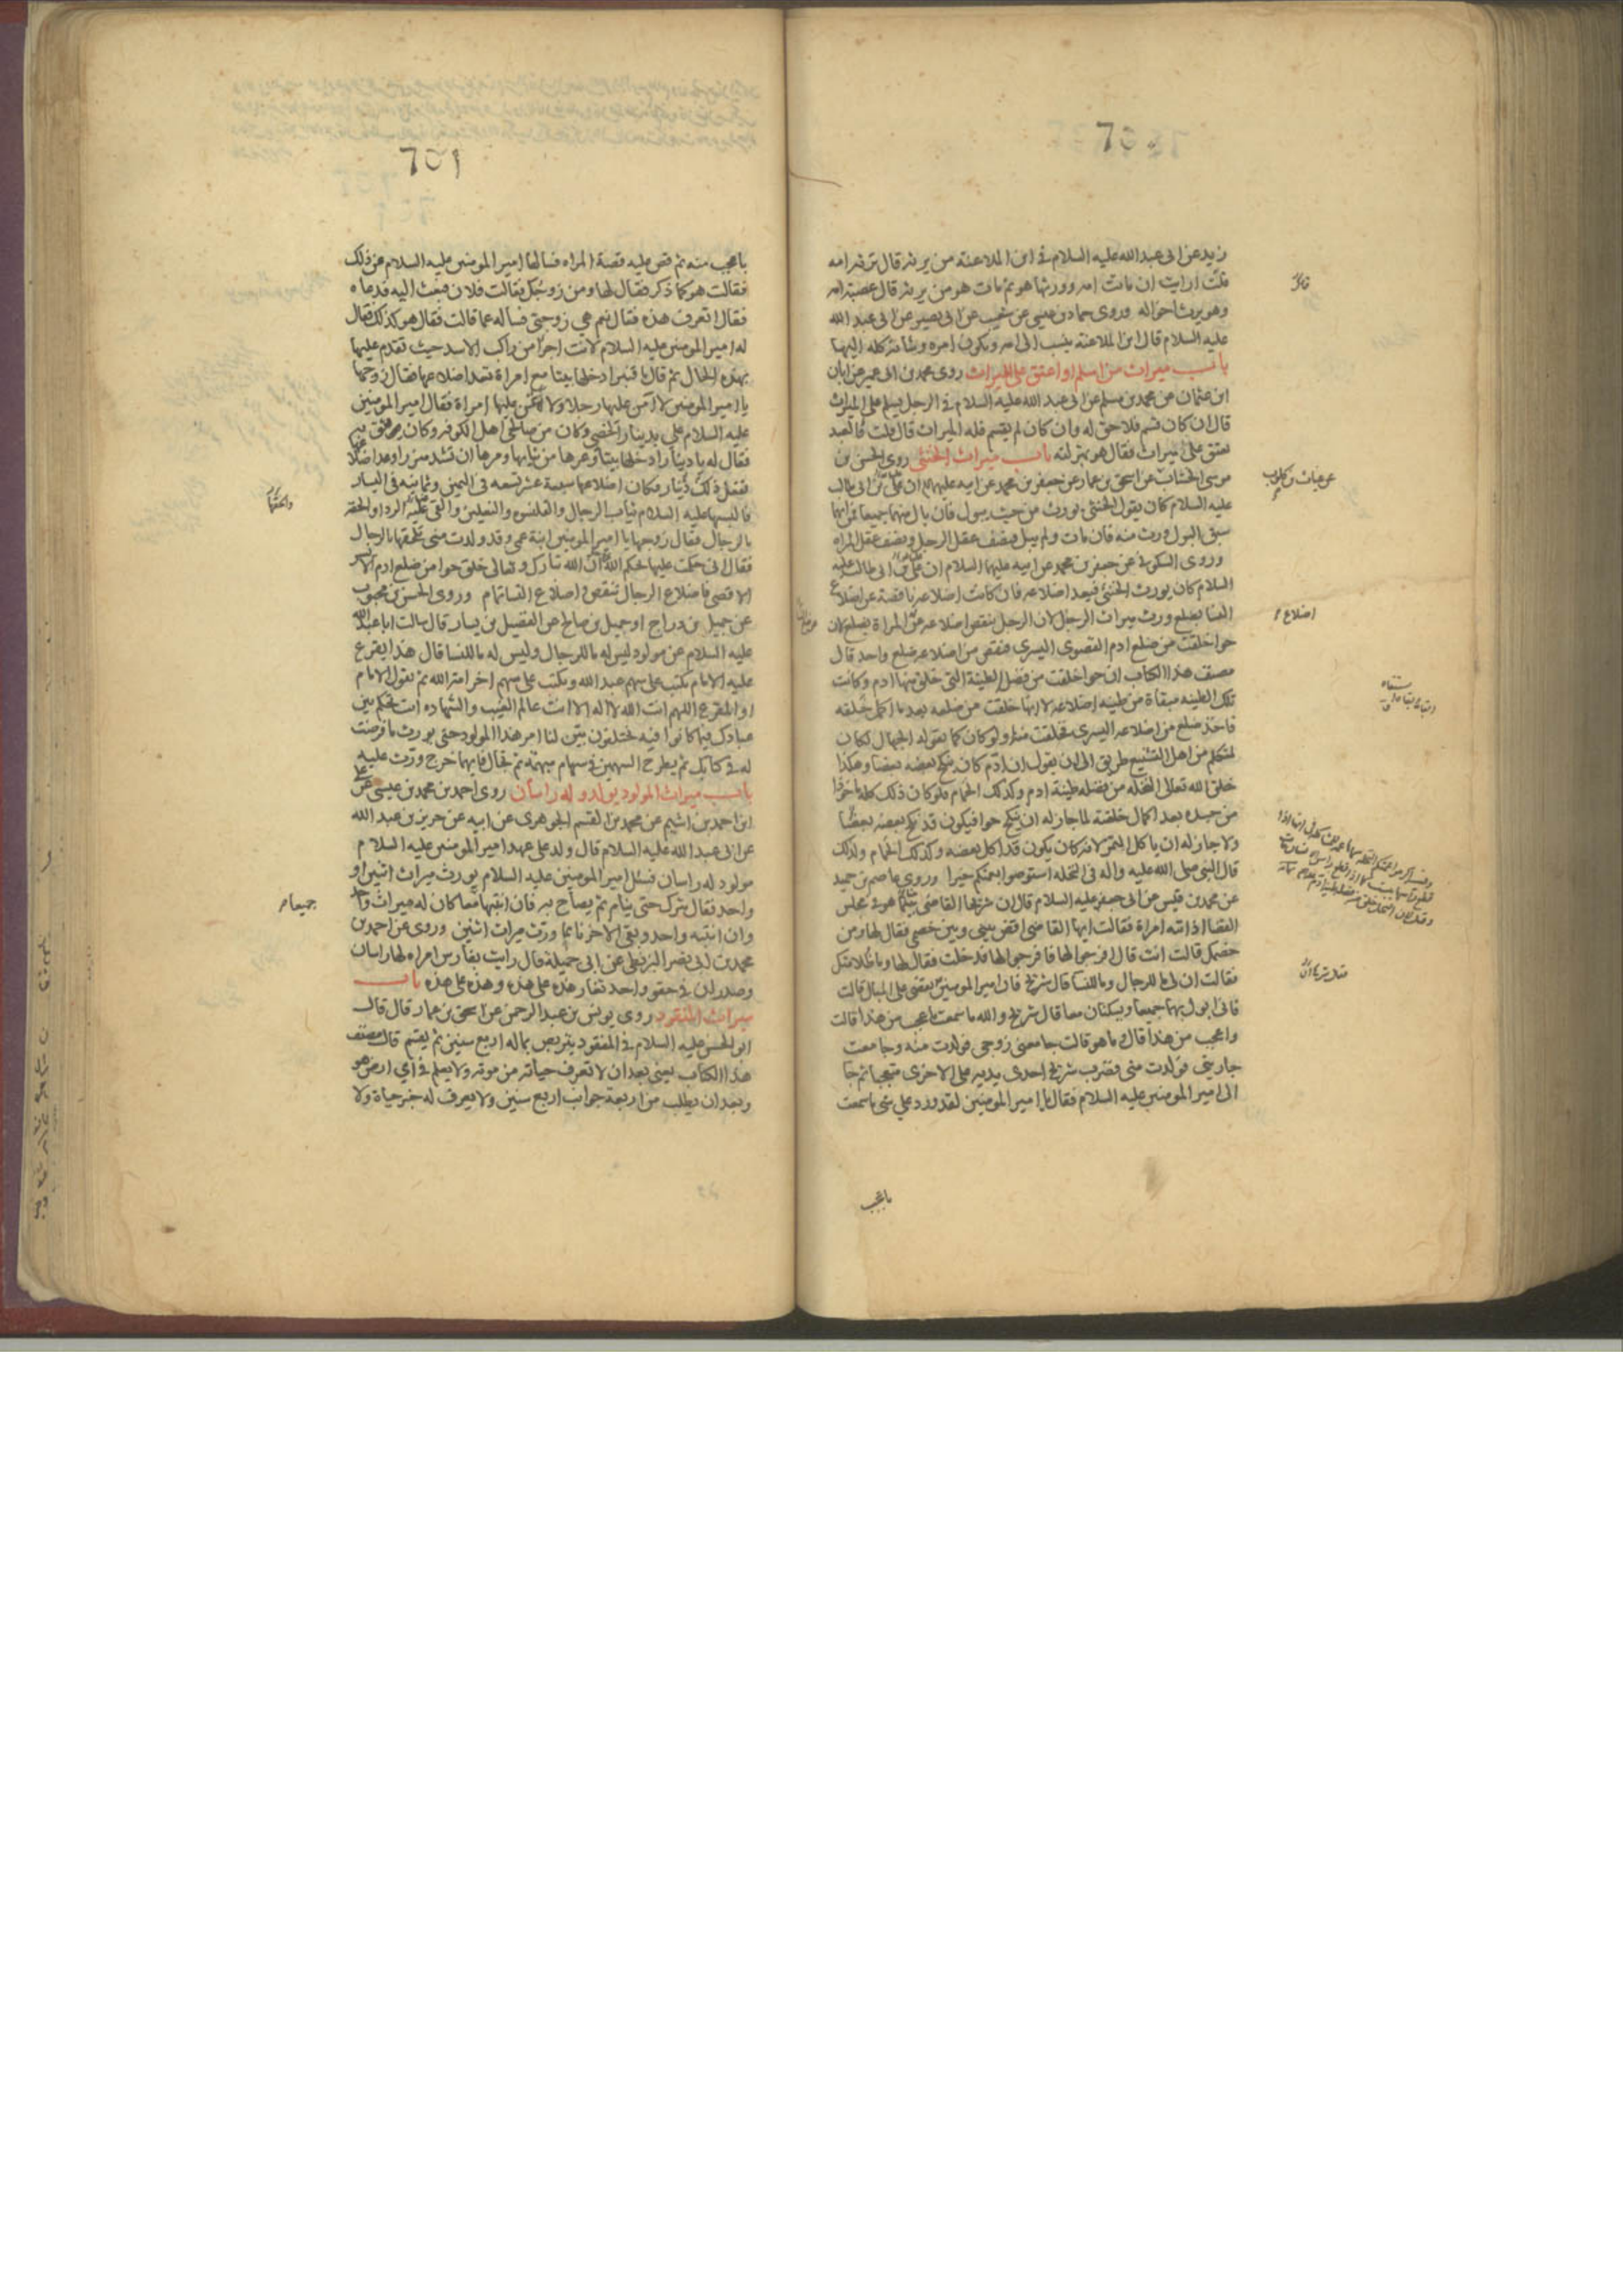 زيد عن ابى عبد الله عليه السلام فى ابن الملاعنة من يرثه قال ترثه امه
قلت ارايت ان ماتت امه وورثها هو ثم مات هو من يرثه قال عصبة امه
وهو يرث اخواله وروى حماد بن عيسى عن شعيب عن ابى بصير عن ابى عبد الله
عليه السلام قال ابن الملاعنة ينسب الى امه ويكون امره وشانه كله اليها
باب ميراث من اسلم او اعتق على الميراث روى محمد بن ابى عمير عن ابان
ابن عثمان عن محمد بن مسلم عن ابى عبد الله عليه السلام فى الرجل يسلم على الميراث
قال ان كان قسم فلا حق له وان كان لم يقسم فله الميراث قال قلت فالعبد
يعتق على ميراث فقال هو بمنزلته باب ميراث الخنثى روى الحسن بن
موسى الخشاب عن اسحق بن عمار عن جعفر بن محمد عن ابيه عليهما ان على بن ابى طالب
عليه السلام كان يقول الخنثى يورث من حيث يبول فان بال منهما جميعا فمن ايهما
سبق البول ورث منه فان مات ولم يبل فنصف عقل الرجل ونصف عقل المراه
وروى السكونى عن جعفر بن محمد عن ابيه عليهما السلام ان على بن ابى طالب عليه
السلام كان يورث الخنثى فيعد اضلاعه فان كانت اضلاعه ناقصة عن اضلاع
النسا بضلع ورث ميراث الرجل لان الرجل ينقص اضلاعه عن المراة بضلع لان
حوا خلقت من ضلع ادم القصوى اليسرى فنقص من اضلاعه ضلع واحد قال
مصنف هذا الكتاب ان حوا خلقت من فضل الطينة التى خلق منها ادم وكانت
تلك الطينه مبقاة من طينه اضلاعه لا انها خلقت من ضلعه بعد ما اكمل خلقه
فاخذ ضلع من اضلاعه اليسرى فخلقت منها ولو كان كما يقوله الجهال لكان
لمتكلم من اهل التشنيع طريق الى ان يقول ان ادم كان ينكح بعضه بعضا وهكذا
خلق الله تعالى النخله من فضله طينة ادم وكذلك الحمام فلو كان ذلك كله ماخوذا
من جسده بعد اكمال خلقته لما جاز له ان ينكح حوا فيكون قد نكح بعضه بعضا
ولا جاز له ان ياكل التمر لانه كان يكون قد اكل بعضه وكذلك الحمام ولذلك
قال النبى صلى الله عليه واله فى النخله استوصوا بعمتكم خيرا وروى عاصم بن حميد
عن محمد بن قيس عن ابى جعفر عليه السلام قال ان شريحا القاضى بينما هو فى مجلس
القضا اذ اتته امراة فقالت ايها القاضى اقض بينى وبين خصمى فقال لها ومن
خصمك قالت انت قال افرجوا لها فافرجوا لها فدخلت فقال لها وما ظلامتك
فقالت ان لى ما للرجال وما للنسا قال شريح فان امير المومنين يقضى على المبال قالت
فانى ابول بهما جميعا ويسكنان معا قال شريح والله ما سمعت باعجب من هذا قالت
واعجب من هذا قال وما هو قالت جامعنى زوجى فولدت منه وجامعت
جاريتى فولدت منى فضرب شريح احدى يديه على الاخرى متعجبا ثم جا
الى امير المومنين عليه السلام فقال يا امير المومنين لقد ورد على شى ما سمعت
باعجب
اضلاع
باعجب منه ثم قص عليه قصة المراه فسالها امير المومنين عليه السلام عن ذلك
فقالت هو كما ذكر فقال لها ومن زوجك فقالت فلان فبعث اليه فدعاه
فقال اتعرف هذه فقال نعم هى زوجتى فساله عما قالت فقال هو كذلك فقال
له امير المومنين عليه السلام لانت اجرا من راكب الاسد حيث تقدم عليها
بهذه الحال ثم قال يا قنبر ادخلها بيتا مع امراة تعد اضلاعها فقال زوجها
يا امير المومنين لا امن عليها رجلا ولا ائتمن عليها امراة فقال امير المومنين
عليه السلام على بدينار الخصى وكان من صالحى اهل الكوفه وكان يثق به
فقال له يا دينار ادخلها بيتا وعرها من ثيابها ومرها ان تشد مئزرا وعد اضلاعها
ففعل ذلك دينار وكان اضلاعها سبعة عشر تسعه فى اليمين وثمانيه فى اليسار
فالبسها عليه السلام ثياب الرجال والقلنسوه والنعلين والقى عليه الردا والحقه
بالرجال فقال زوجها يا امير المومنين ابنة عمى وقد ولدت منى تلحقها بالرجال
فقال انى حكمت عليها بحكم الله ان الله تبارك وتعالى خلق حوا من ضلع ادم الايسر
الاقصى فاضلاع الرجال تنقص واضلاع النسا تمام وروى الحسن بن محبوب
عن جميل بن دراج او جميل بن صالح عن الفضيل بن يسار قال سالت ابا عبد الله
عليه السلام عن مولود ليس له ما للرجال وليس له ما للنسا قال هذا يقرع
عليه الامام يكتب على سهم عبد الله ويكتب على سهم اخر امة الله ثم يقول الامام
او المقرع اللهم انت الله لا اله الا انت عالم الغيب والشهاده انت تحكم بين
عبادك فيما كانوا فيه يختلفون بين لنا امر هذا المولود حتى يورث ما فرضت
له فى كتابك ثم يطرح السهمين فى سهام مبهمة ثم تجال فايهما خرج ورث عليه
باب ميراث المولود يولد وله راسان روى احمد بن محمد بن عيسى عن على
ابن احمد بن اشيم عن محمد بن القسم الجوهرى عن ابيه عن حريز بن عبد الله
عن ابى عبد الله عليه السلام قال ولد على عهد امير المومنين عليه السلام
مولود له راسان فسئل امير المومنين عليه السلام يورث ميراث اثنين او
واحد فقال يترك حتى ينام ثم يصاح به فان انتبها معا كان له ميراث واحد
وان انتبه واحد وبقى الاخر نايما ورث ميراث اثنين وروى عن احمد بن
محمد بن ابى نصر البزنطى عن ابى جميلة قال رايت بفارس امراه لها راسان
وصدران فى حقو واحد تغار هذه على هذه وهذه على هذه باب
ميراث المفقود روى يونس بن عبد الرحمن عن اسحق بن عمار قال قال
ابو الحسن عليه السلام فى المفقود يتربص بماله اربع سنين ثم يقسم قال مصنف
هذا الكتاب يعنى بعد ان لا تعرف حياته من موته ولا يعلم فى اى ارض هو
وبعد ان يطلب من اربعة جوانب اربع سنين ولا يعرف له خبر حياة ولا
جميعا